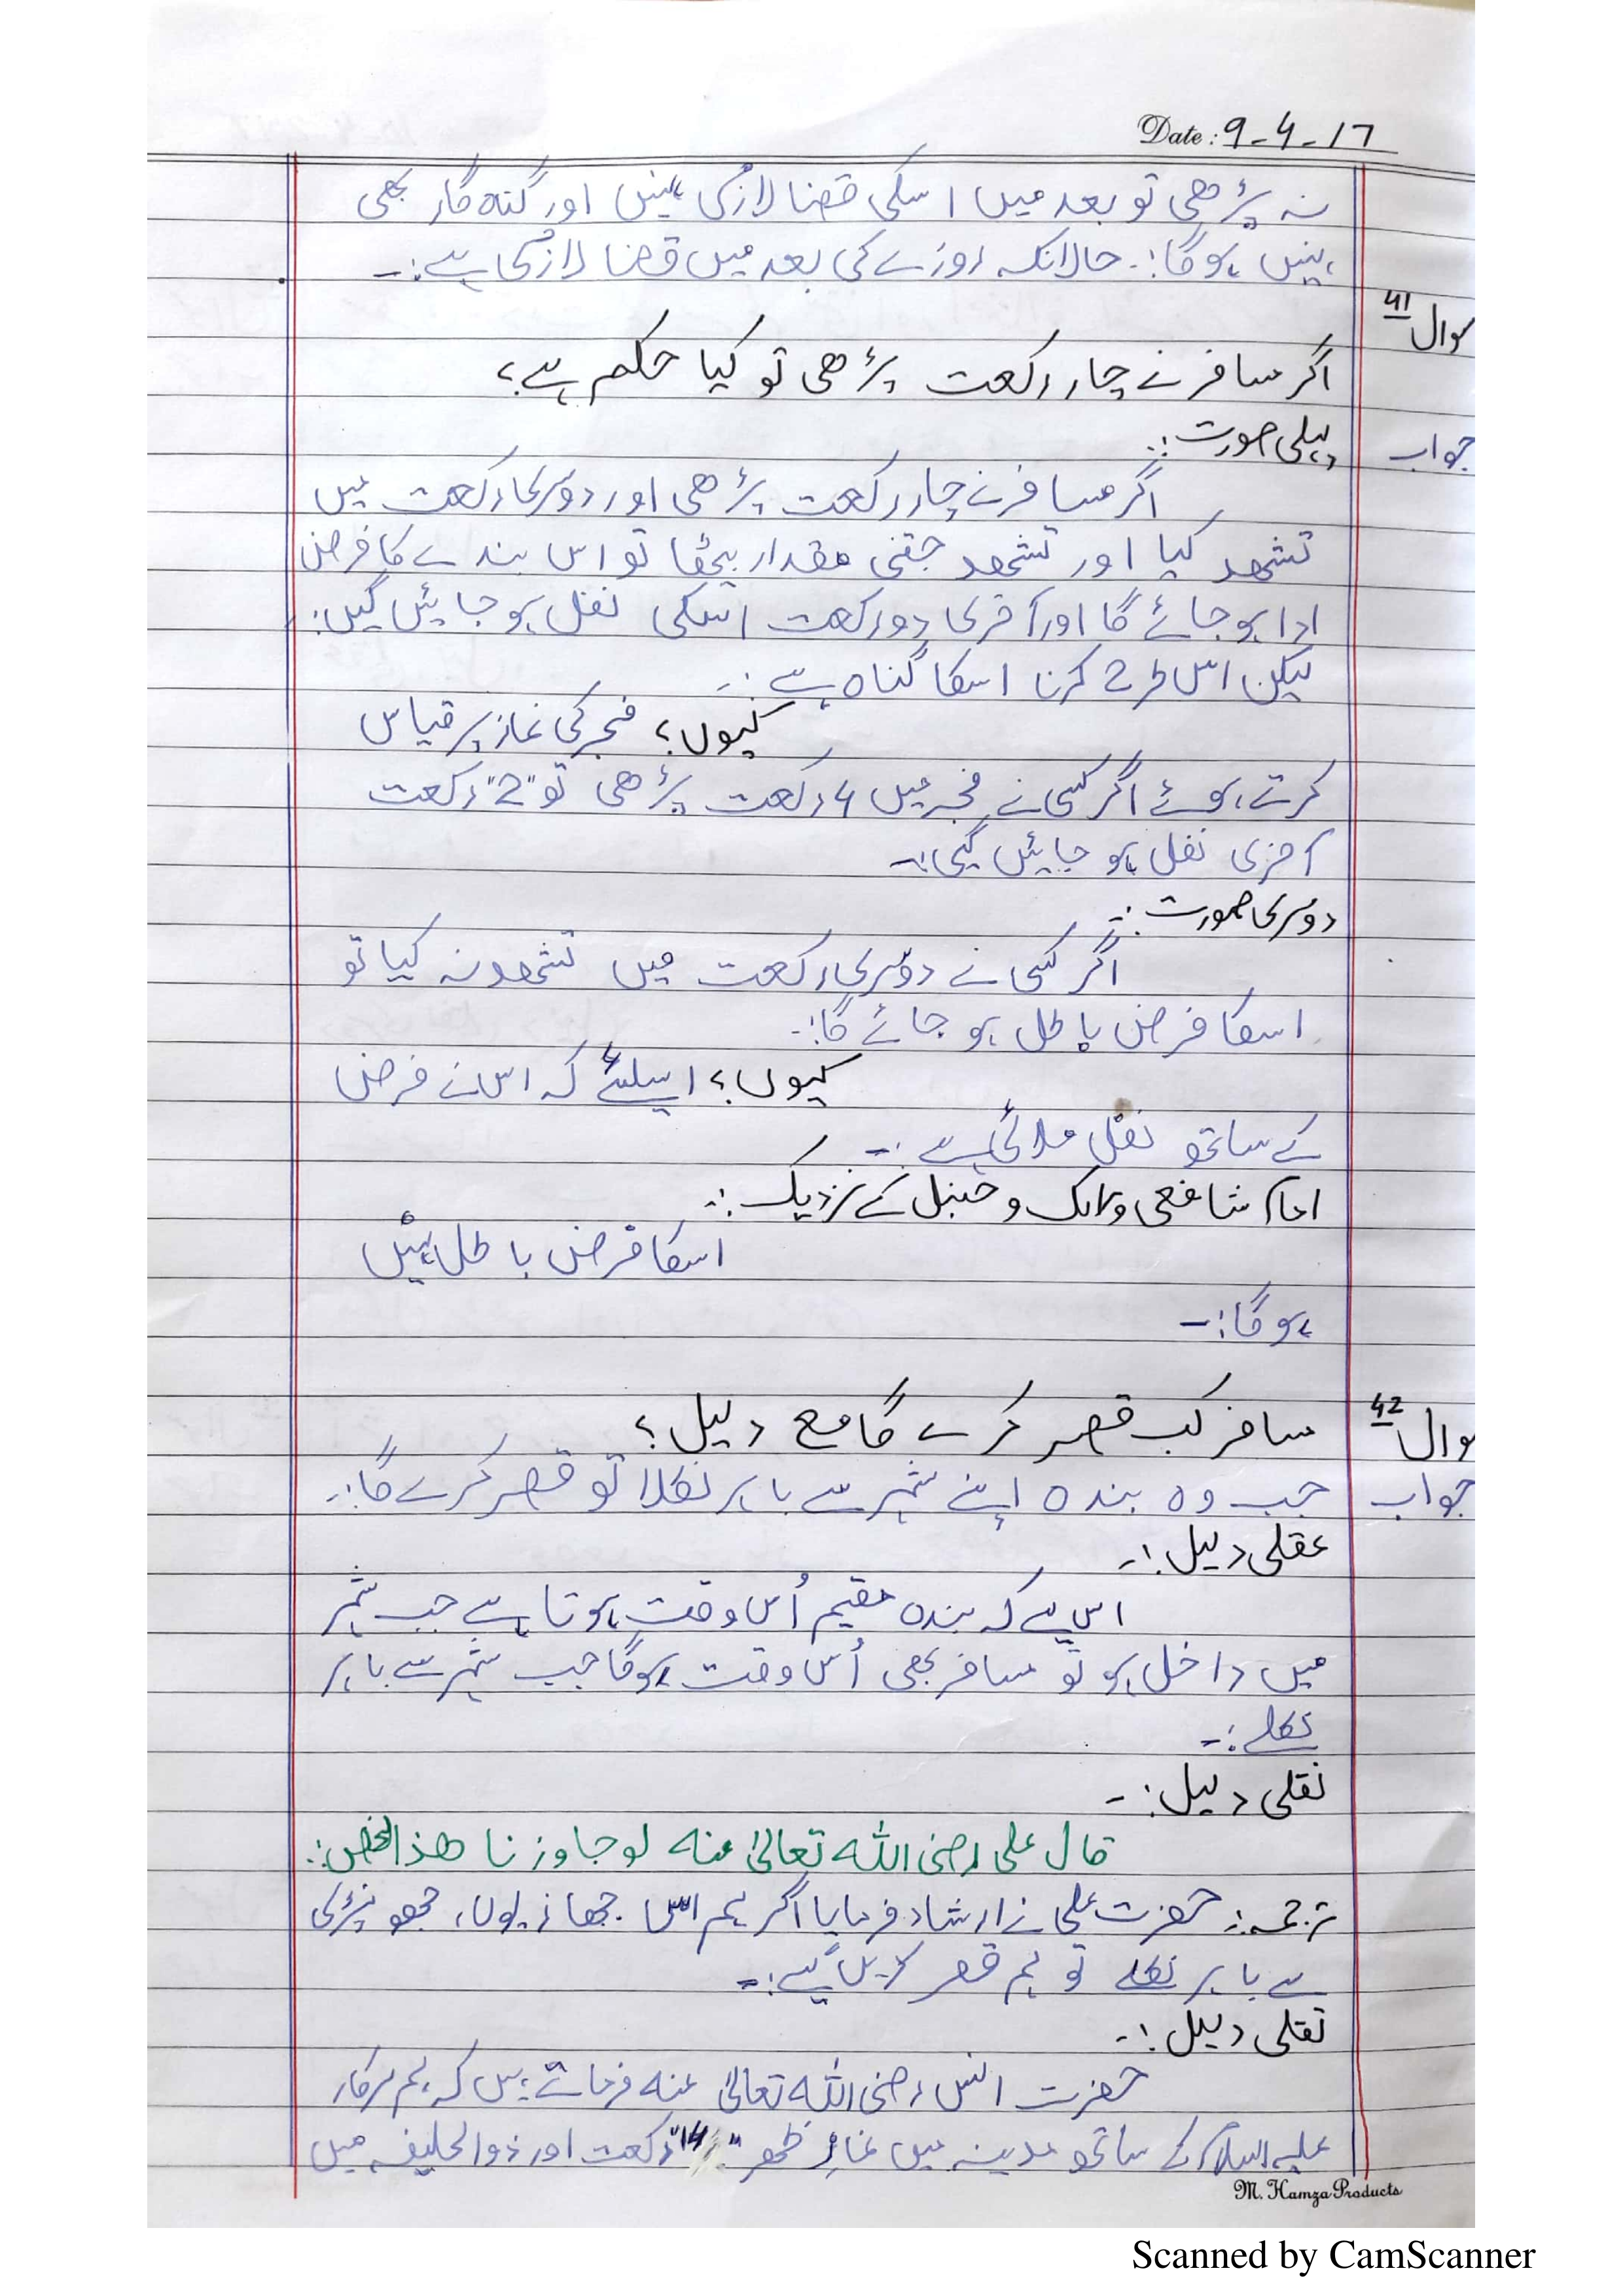 Date: 9-4-17
نہ پڑھی تو بعد میں اسکی قضا لازمی نہیں اور گناہ گار بھی
نہیں ہوگا:۔ حالانکہ روزے کی بعد میں قضا لازمی ہے:۔
سوال 41
اگر مسافر نے چار رکعت پڑھی تو کیا حکم ہے؟
جواب پہلی صورت:۔
اگر مسافر نے چار رکعت پڑھی اور دوسری رکعت میں
تشھد کیا اور تشھد جتنی مقدار بیٹھا تو اس بندے کا فرض
ادا ہو جائے گا اور آخری دو رکعت اسکی نفل ہو جائیں گیں:
لیکن اس طرح کرنا اسکا گناہ ہے:۔
کیوں؟ فجر کی نماز پر قیاس
کرتے ہوئے اگر کسی نے فجر میں 4 رکعت پڑھی تو "2" رکعت
آخری نفل ہو جائیں گیں:۔
دوسری صورت:۔
اگر کسی نے دوسری رکعت میں تشھد نہ کیا تو
اسکا فرض باطل ہو جائے گا:۔
کیوں؟ اسلئے کہ اس نے فرض
کے ساتھ نفل ملائی ہے:۔
امام شافعی و مالک و حنبل کے نزدیک:۔
اسکا فرض باطل نہیں
ہوگا:۔
سوال 42 مسافر کب قصر کرے گا مع دلیل؟
جواب جب وہ بندہ اپنے شہر سے باہر نکلا تو قصر کرے گا:۔
عقلی دلیل:۔
اس لیے کہ بندہ مقیم اُس وقت ہوتا ہے جب شہر
میں داخل ہو تو مسافر بھی اُس وقت ہوگا جب شہر سے باہر
نکلے:۔
نقلی دلیل:۔
قال علی رضی اللہ تعالیٰ عنہ لو جاوزنا ھذا الخص:۔
ترجمہ:۔ حضرت علی نے ارشاد فرمایا اگر ہم اس جھونپڑی
سے باہر نکلے تو ہم قصر کریں گے:۔
نقلی دلیل:۔
حضرت انس رضی اللہ تعالیٰ عنہ فرماتے ہیں کہ ہم سرکار
علیہ السلام کے ساتھ مدینہ میں نماز ظھر "4" رکعت اور ذوالحلیفہ میں
M. Hamza Products
Scanned by CamScanner